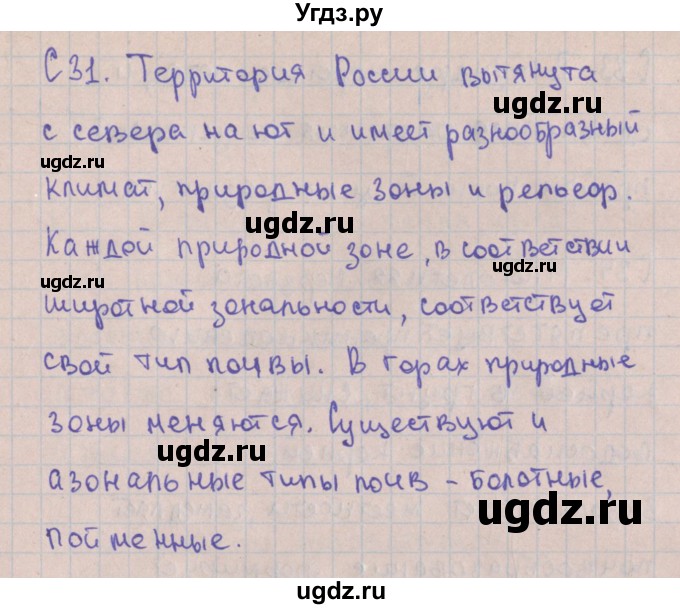 Угдз.ру
С 31. Территория России вытянута
ugdz.ru
с севера на юг и имеет разнообразный
ugdz.ru
ugdz.ru
климат, природные зоны и рельеф.
ugdz.ru
Каждой природной зоне, в соответствии
ugdz.ru ugdz.ru
широтной зональности, соответствует
свой тип почвы. В горах природные
ugdz.ru
зоны меняются. Существуют и
ugdz.ru
азональные типы почв - болотные,
ugdz.ru
пойменные.
ugdz.ru
ugdz.ru